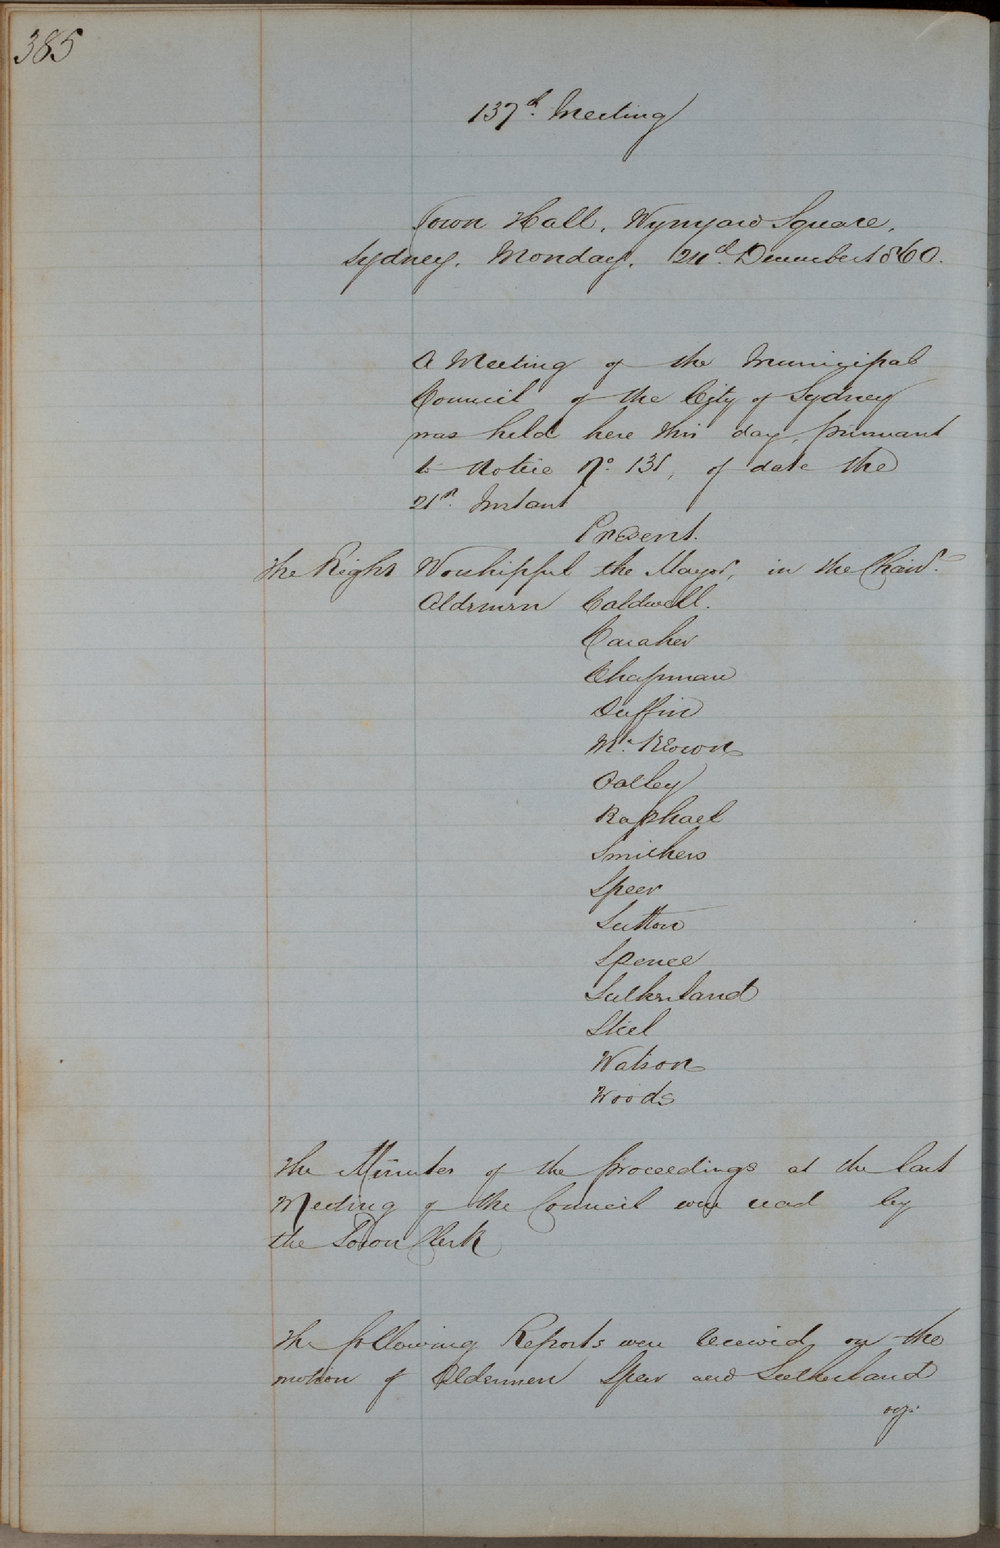 385
137th Meeting
Town Hall, Wynyard Square,
Sydney, Monday, 24th December 1860.
A Meeting of the Municipal
Council of the City of Sydney
was held here this day, pursuant
to Notice No. 131, of date the
21st Instant
Present.
The Right Worshipful the Mayor, in the Chair.
Aldermen Caldwell.
Caraher
Chapman
Duffin
Mc.Keown
Oatley
Raphael
Smithers
Speer
Sutton
Spence
Sutherland
Steel
Watson
Woods
The Minutes of the proceedings at the last
Meeting of the Council were read by
the Town Clerk
The following Reports were received on the
motion of Aldermen Speer and Sutherland